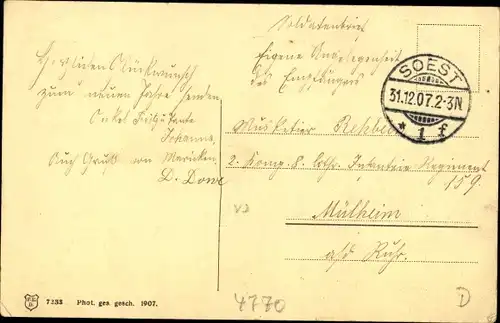 Herzlichen Glückwunsch
zum neuen Jahre senden
Onkel Fritz u. Tante
Johanna,
Auch Gruß von
Soldatenbrief
Eigene Angelegenheit
des Empfängers
SOEST
31.12.07.2-3N
* 1 f
Musketier
2. Komp. 8. Lothr. Infanterie Regiment
159.
Mülheim
a/d Ruhr.
4770
D
7233 Phot. ges. gesch. 1907.